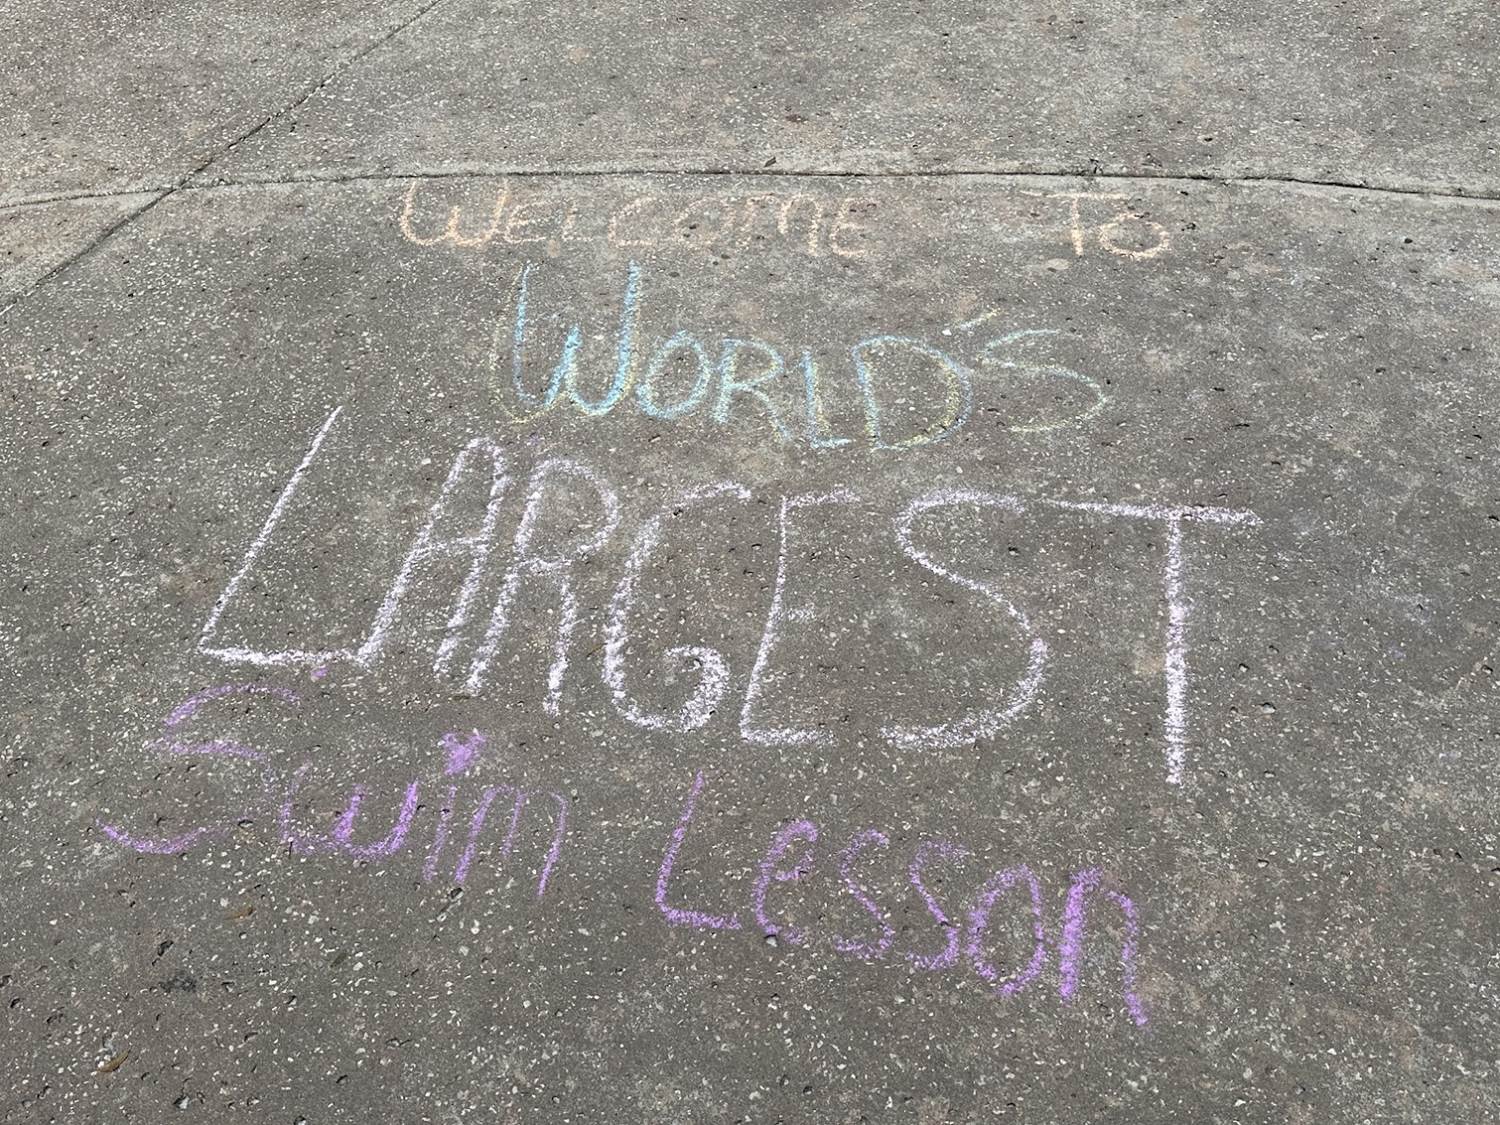 WELCOME TO
WORLD'S
LARGEST
Swim Lesson